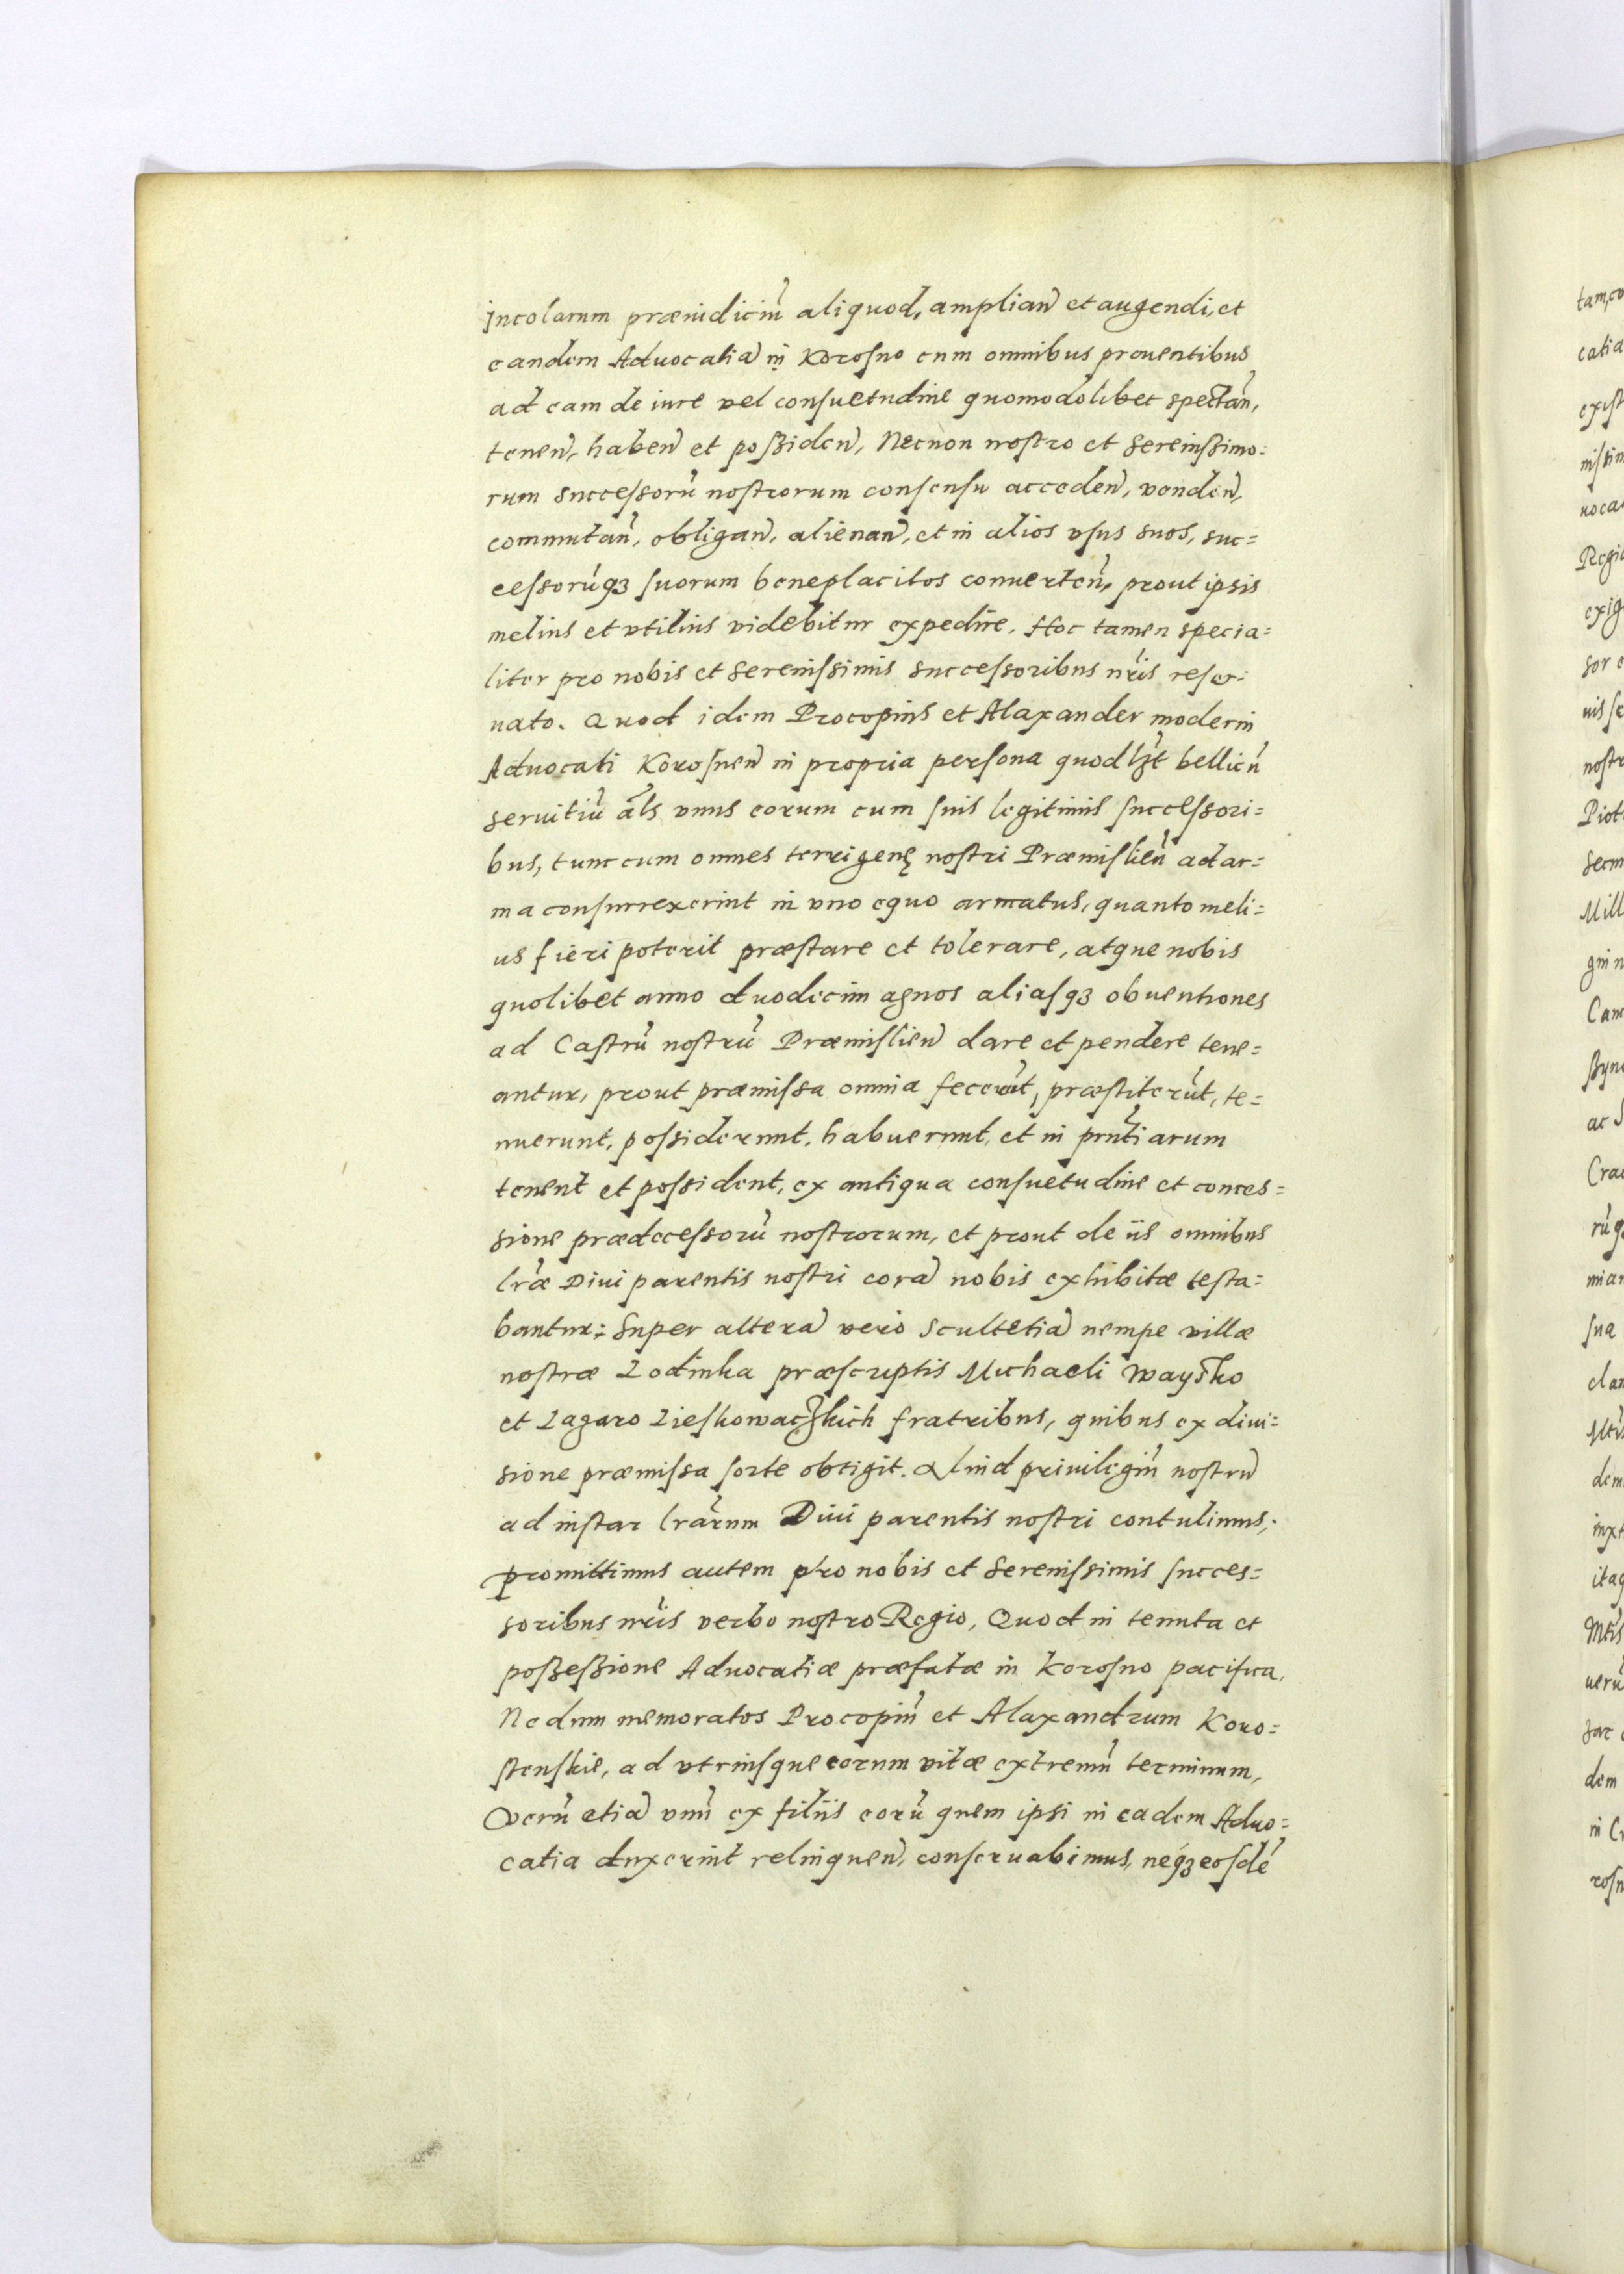 Incolarum præiudiciũ aliquod, amplian̄ et augendi, et
eandem Aduocatiã in Korosno cum omnibus prouentibus
ad eam de iure vel consuetudine quomodolibet spectan̄,
tenen̄, haben̄ et possiden̄, Necnon nostro et Serenissimo=
rum successorũ nostrorum consensu acceden̄, venden̄,
commutan̄, obligan̄, alienan̄, et in alios vsus suos, suc=
cessorũq3 suorum beneplacitos conuerten̄, prout ipsis
melius et vtilius videbitur expedire. Hoc tamen specia=
liter pro nobis et Serenissimis successoribus nr̃is reser=
uato. Quod idem Procopius et Alaxander moderni
Aduocati Korosnen̄ in propria persona quodlȝt bellicũ
seruitiũ al̃s vnus eorum cum suis legitimis successori=
bus, tunc cum omnes terrigenę nostri Præmislien̄ ad ar=
ma consurrexerint in vno equo armatus, quanto meli=
us fieri poterit præstare et tolerare, atque nobis
quolibet anno duodecim agnos aliasq3 obuentiones
ad Castrũ nostrũ Præmislien̄ dare et pendere tene=
antur, prout præmissa omnia fecerũt, præstiterũt, te=
nuerunt, possiderunt, habuerunt, et in prñtiarum
tenent et possident, ex antiqua consuetudine et conces=
sione prædecessorũ nostrorum, et prout de iis omnibus
lr̃æ Diui parentis nostri corã nobis exhibitæ testa=
bantur; Super alterã vero Scultetiã nempe villæ
nostræ Lodinka præscriptis Michaeli Waysko
et Lazaro Lieskowaczkich fratribus, quibus ex diui=
sione præmissa sorte obtigit. Aliud priuilegiũ nostrũ
ad instar lr̃arum Diui parentis nostri contulimus;
promittimus autem pro nobis et Serenissimis succes=
soribus nr̃is verbo nostro Regio, Quod in tenuta et
possessione Aduocatiæ præfatæ in Korosno pacifica,
Nedum memoratos Procopiũ et Alaxandrum Koro=
stenskie, ad vtriusque eorum vitæ extremũ terminum,
Verũ etiã vnũ ex filiis eorũ quem ipsi in eadem Aduo=
catia duxerint relinquen̄, conseruabimus, neq3 eosdẽ